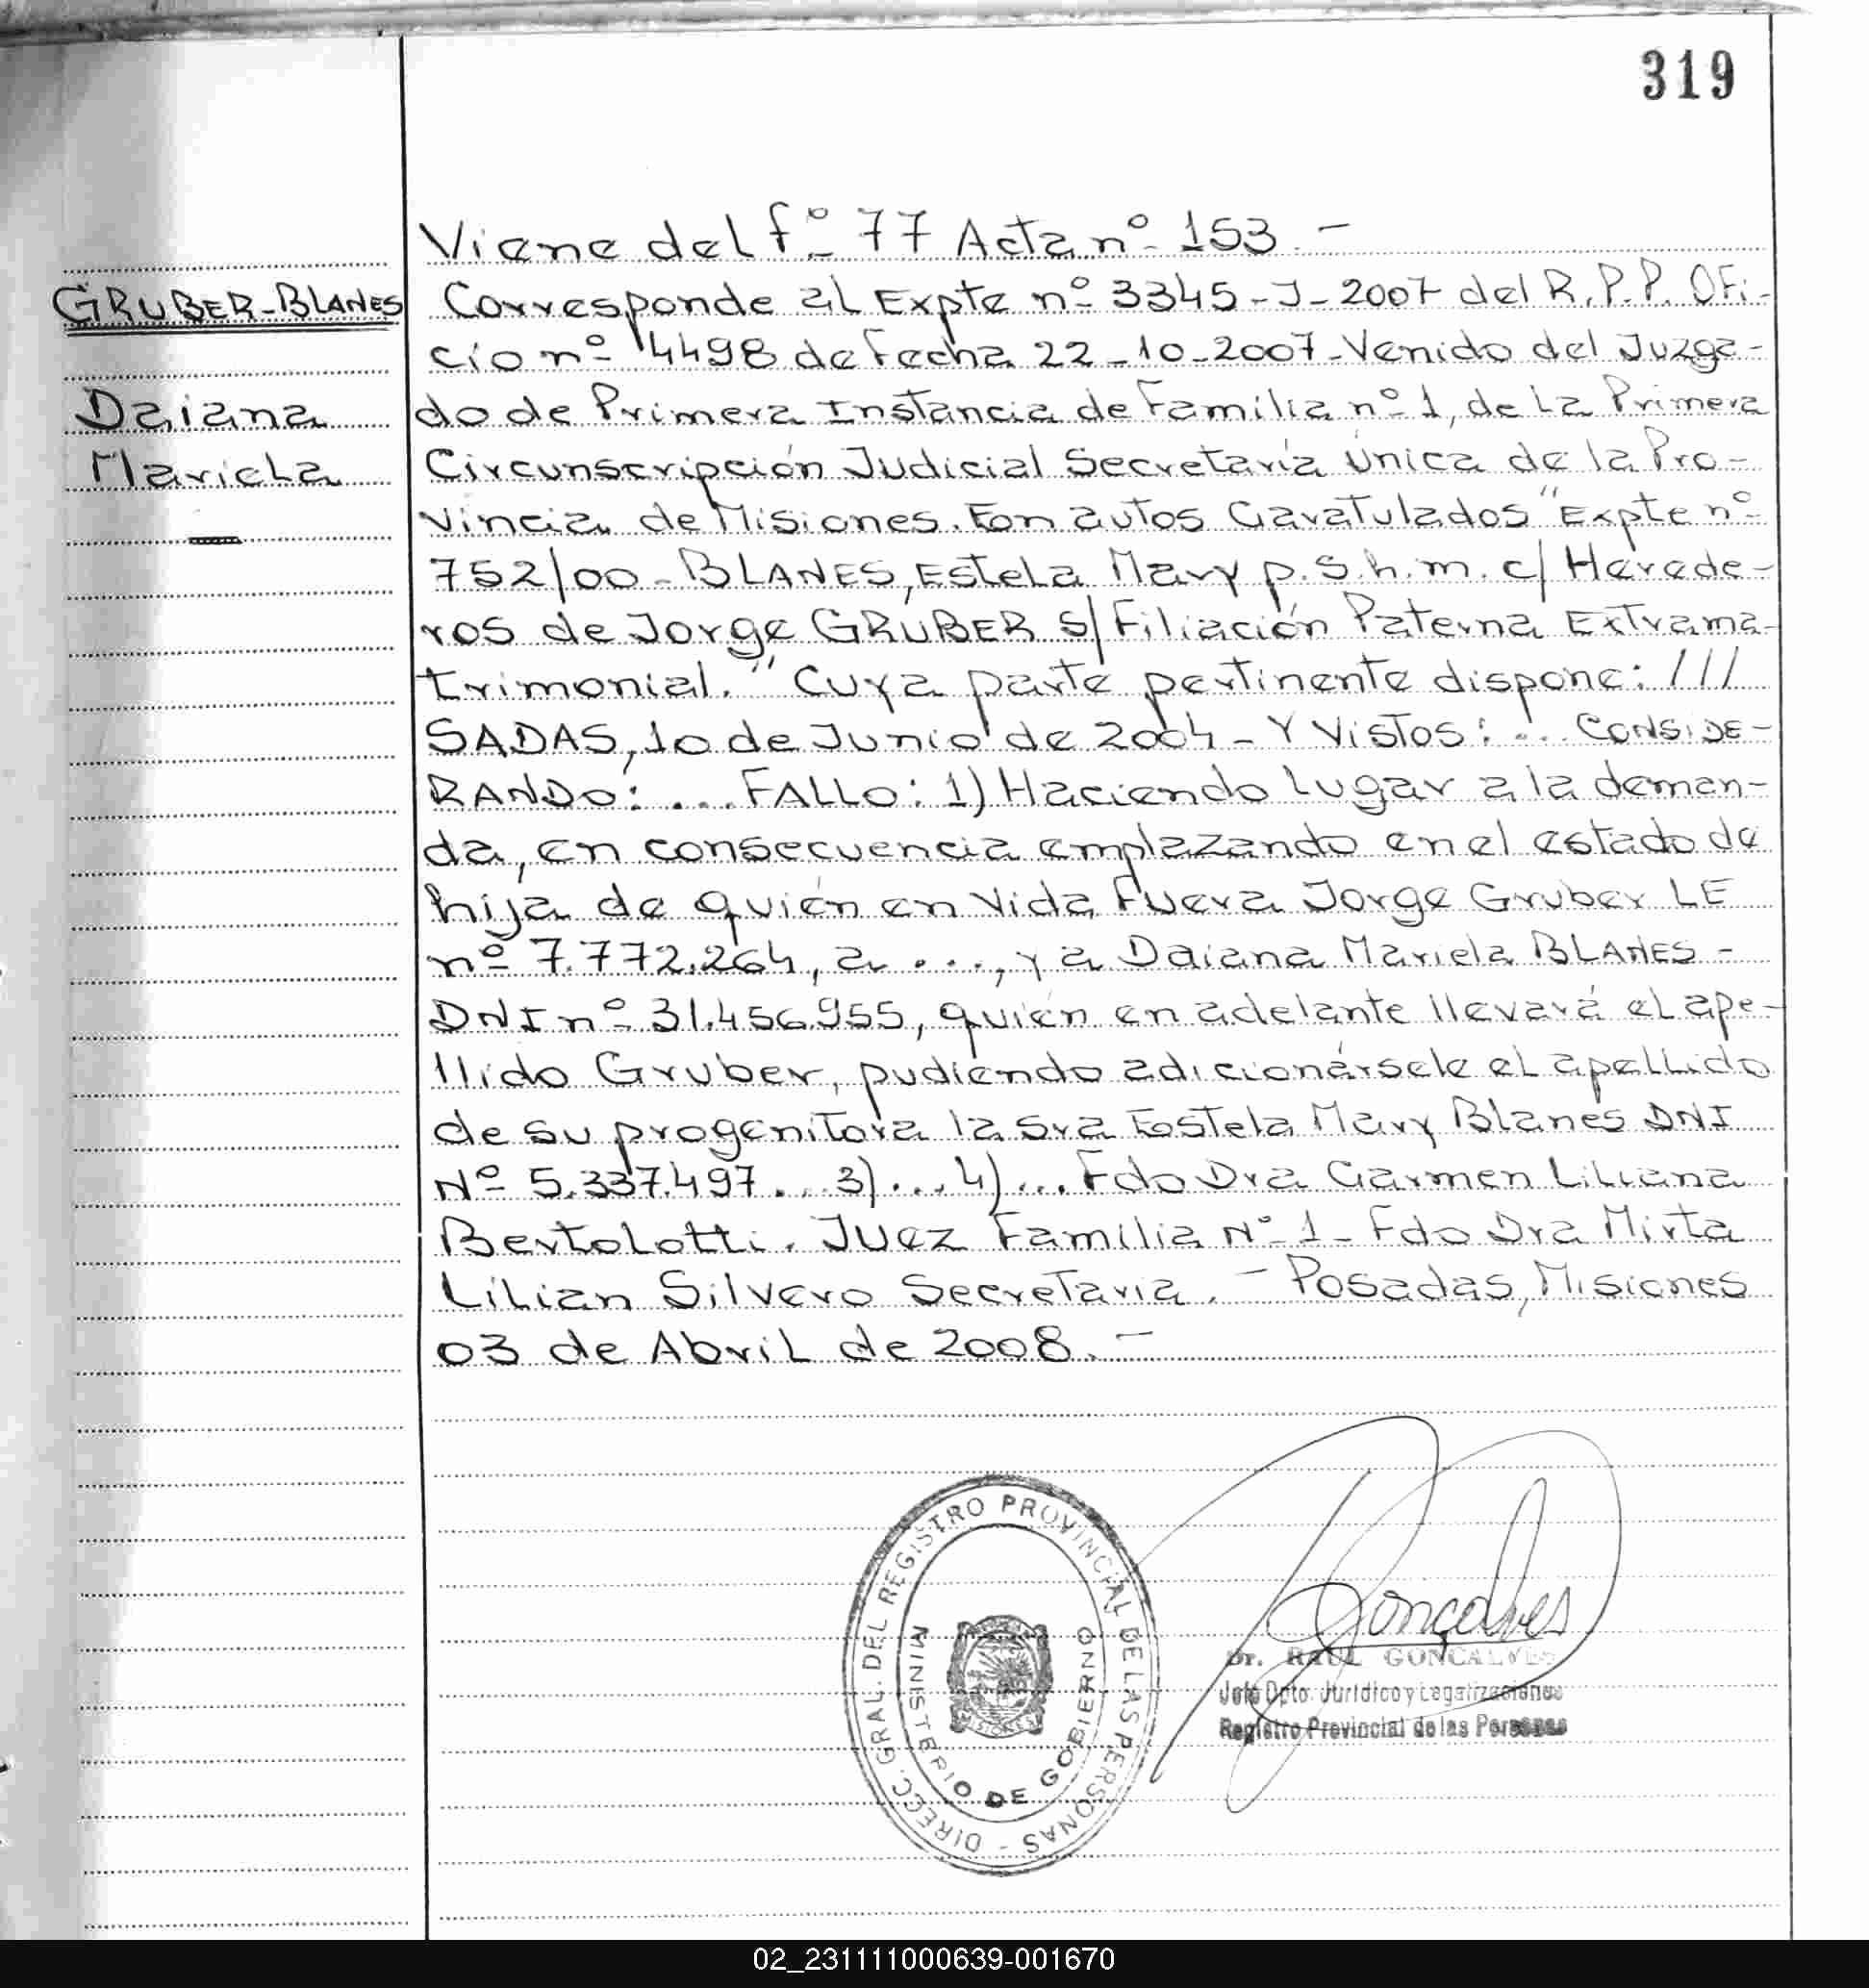 319
Viene del fº 77 Acta nº 153.-
GRUBER-BLANES
Daiana
Mariela
Corresponde al Expte nº 3345-J-2007 del R.P.P. Ofi-
cio nº 4498 de fecha 22-10-2007-Venido del Juzga-
do de Primera Instancia de Familia nº 1, de la Primera
Circunscripción Judicial Secretaría Única de la Pro-
vincia de Misiones. En autos Caratulados "Expte nº
752/00-BLANES, Estela Mary p.s.h.m. c/ Herede-
ros de Jorge GRUBER s/Filiación Paterna Extrama-
trimonial." Cuya parte pertinente dispone: ///
SADAS, 10 de Junio de 2004-Y Vistos:... CONSIDE-
RANDO:... FALLO: 1) Haciendo lugar a la deman-
da, en consecuencia emplazando en el estado de
hija de quién en vida fuera Jorge Gruber LE
nº 7.772.264, a ..., y a Daiana Mariela BLANES-
DNI nº 31.456.955, quién en adelante llevará el ape-
llido Gruber, pudiendo adicionársele el apellido
de su progenitora la Sra Estela Mary Blanes DNI
Nº 5.337.497...3)...4)... Fdo Dra Carmen Liliana
Bertolotti. Juez Familia Nº 1- Fdo Dra Mirta
Lilian Silvero Secretaria.- Posadas, Misiones
03 de Abril de 2008.-
DIRECC. GRAL. DEL REGISTRO PROVINCIAL DE LAS PERSONAS -
MINISTERIO DE GOBIERNO
MISIONES
Gonçalves
Dr. RAUL GONCALVES
Jefe Dpto. Jurídico y Legalizaciones
Registro Provincial de las Personas
02_231111000639-001670